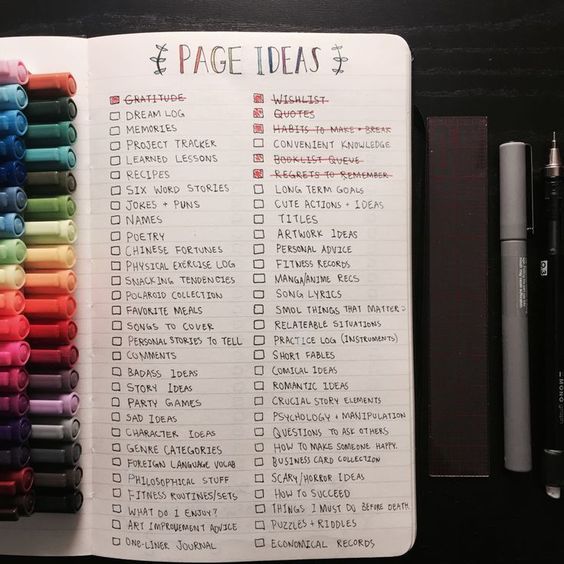 PAGE IDEAS
GRATITUDE
DREAM LOG
MEMORIES
PROJECT TRACKER
LEARNED LESSONS
RECIPES
SIX WORD STORIES
JOKES + PUNS
NAMES
POETRY
CHINESE FORTUNES
PHYSICAL EXERCISE LOG
SNACKING TENDENCIES
POLAROID COLLECTION
FAVORITE MEALS
SONGS TO COVER
PERSONAL STORIES TO TELL
COMMENTS
BADASS IDEAS
STORY IDEAS
PARTY GAMES
SAD IDEAS
CHARACTER IDEAS
GENRE CATEGORIES
FOREIGN LANGUAGE VOCAB
PHILOSOPHICAL STUFF
FITNESS ROUTINES/SETS
WHAT DO I ENJOY?
ART IMPROVEMENT ADVICE
ONE-LINER JOURNAL
WISHLIST
QUOTES
HABITS TO MAKE + BREAK
CONVENIENT KNOWLEDGE
BOOKLIST QUEUE
REGRETS TO REMEMBER
LONG TERM GOALS
CUTE ACTIONS + IDEAS
TITLES
ARTWORK IDEAS
PERSONAL ADVICE
FITNESS RECORDS
MANGA/ANIME RECS
SONG LYRICS
SMOL THINGS THAT MATTER :)
RELATEABLE SITUATIONS
PRACTICE LOG (INSTRUMENTS)
SHORT FABLES
COMICAL IDEAS
ROMANTIC IDEAS
CRUCIAL STORY ELEMENTS
PSYCHOLOGY + MANIPULATION
QUESTIONS TO ASK OTHERS
HOW TO MAKE SOMEONE HAPPY.
BUSINESS CARD COLLECTION
SCARY/HORROR IDEAS
HOW TO SUCCEED
THINGS I MUST DO BEFORE DEATH.
PUZZLES + RIDDLES
ECONOMICAL RECORDS